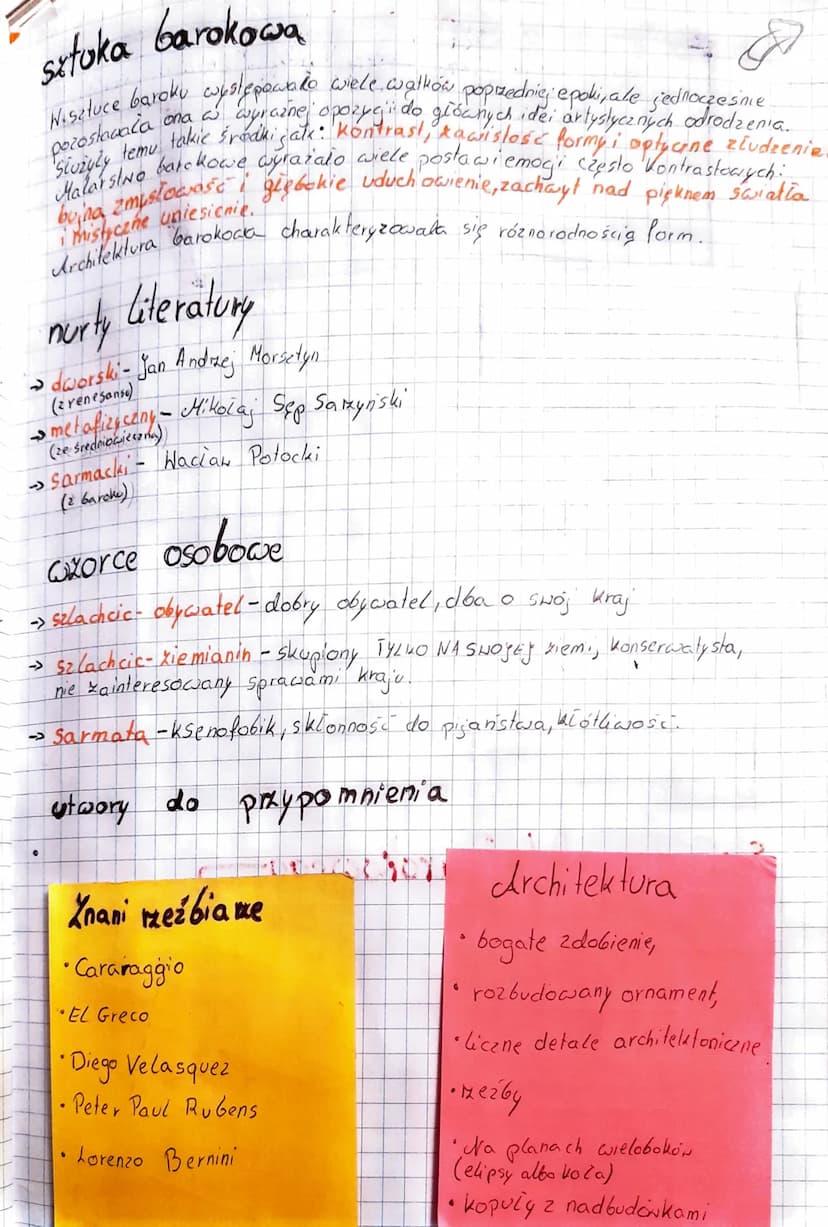 sztuka barokowa
W sztuce baroku występowało wiele wątków poprzedniej epoki, ale jednocześnie
pozostawała ona w wyraźnej opozycji do głównych idei artystycznych odrodzenia.
Służyły temu takie środki jak: kontrast, zawisłość formy i optyczne złudzenie.
Malarstwo barokowe wyrażało wiele postaw i emocji często kontrastowych:
bujną zmysłowość i głębokie uduchowienie, zachwyt nad pięknem światła
i mistyczne uniesienie.
Architektura barokowa charakteryzowała się różnorodnością form.
nurty literatury
→ dworski - Jan Andrzej Morsztyn
(z renesansu)
→ metafizyczny - Mikołaj Sęp Sarzyński
(ze średniowiecza)
→ sarmacki - Wacław Potocki
(z baroku)
wzorce osobowe
→ szlachcic - obywatel - dobry obywatel, dba o swój kraj
→ szlachcic - ziemianin - skupiony TYLKO NA SWOJEJ ziemi, konserwatysta,
nie zainteresowany sprawami kraju.
→ sarmata - ksenofobik, skłonność do pijaństwa, kłótliwość.
utwory do przypomnienia
Znani rzeźbiarze
• Cararaggio
• El Greco
• Diego Velasquez
• Peter Paul Rubens
• Lorenzo Bernini
Architektura
• bogate zdobienie,
• rozbudowany ornament,
• liczne detale architektoniczne
• rzeźby
• Na planach wieloboków
(elipsy albo koła)
• kopuły z nadbudówkami